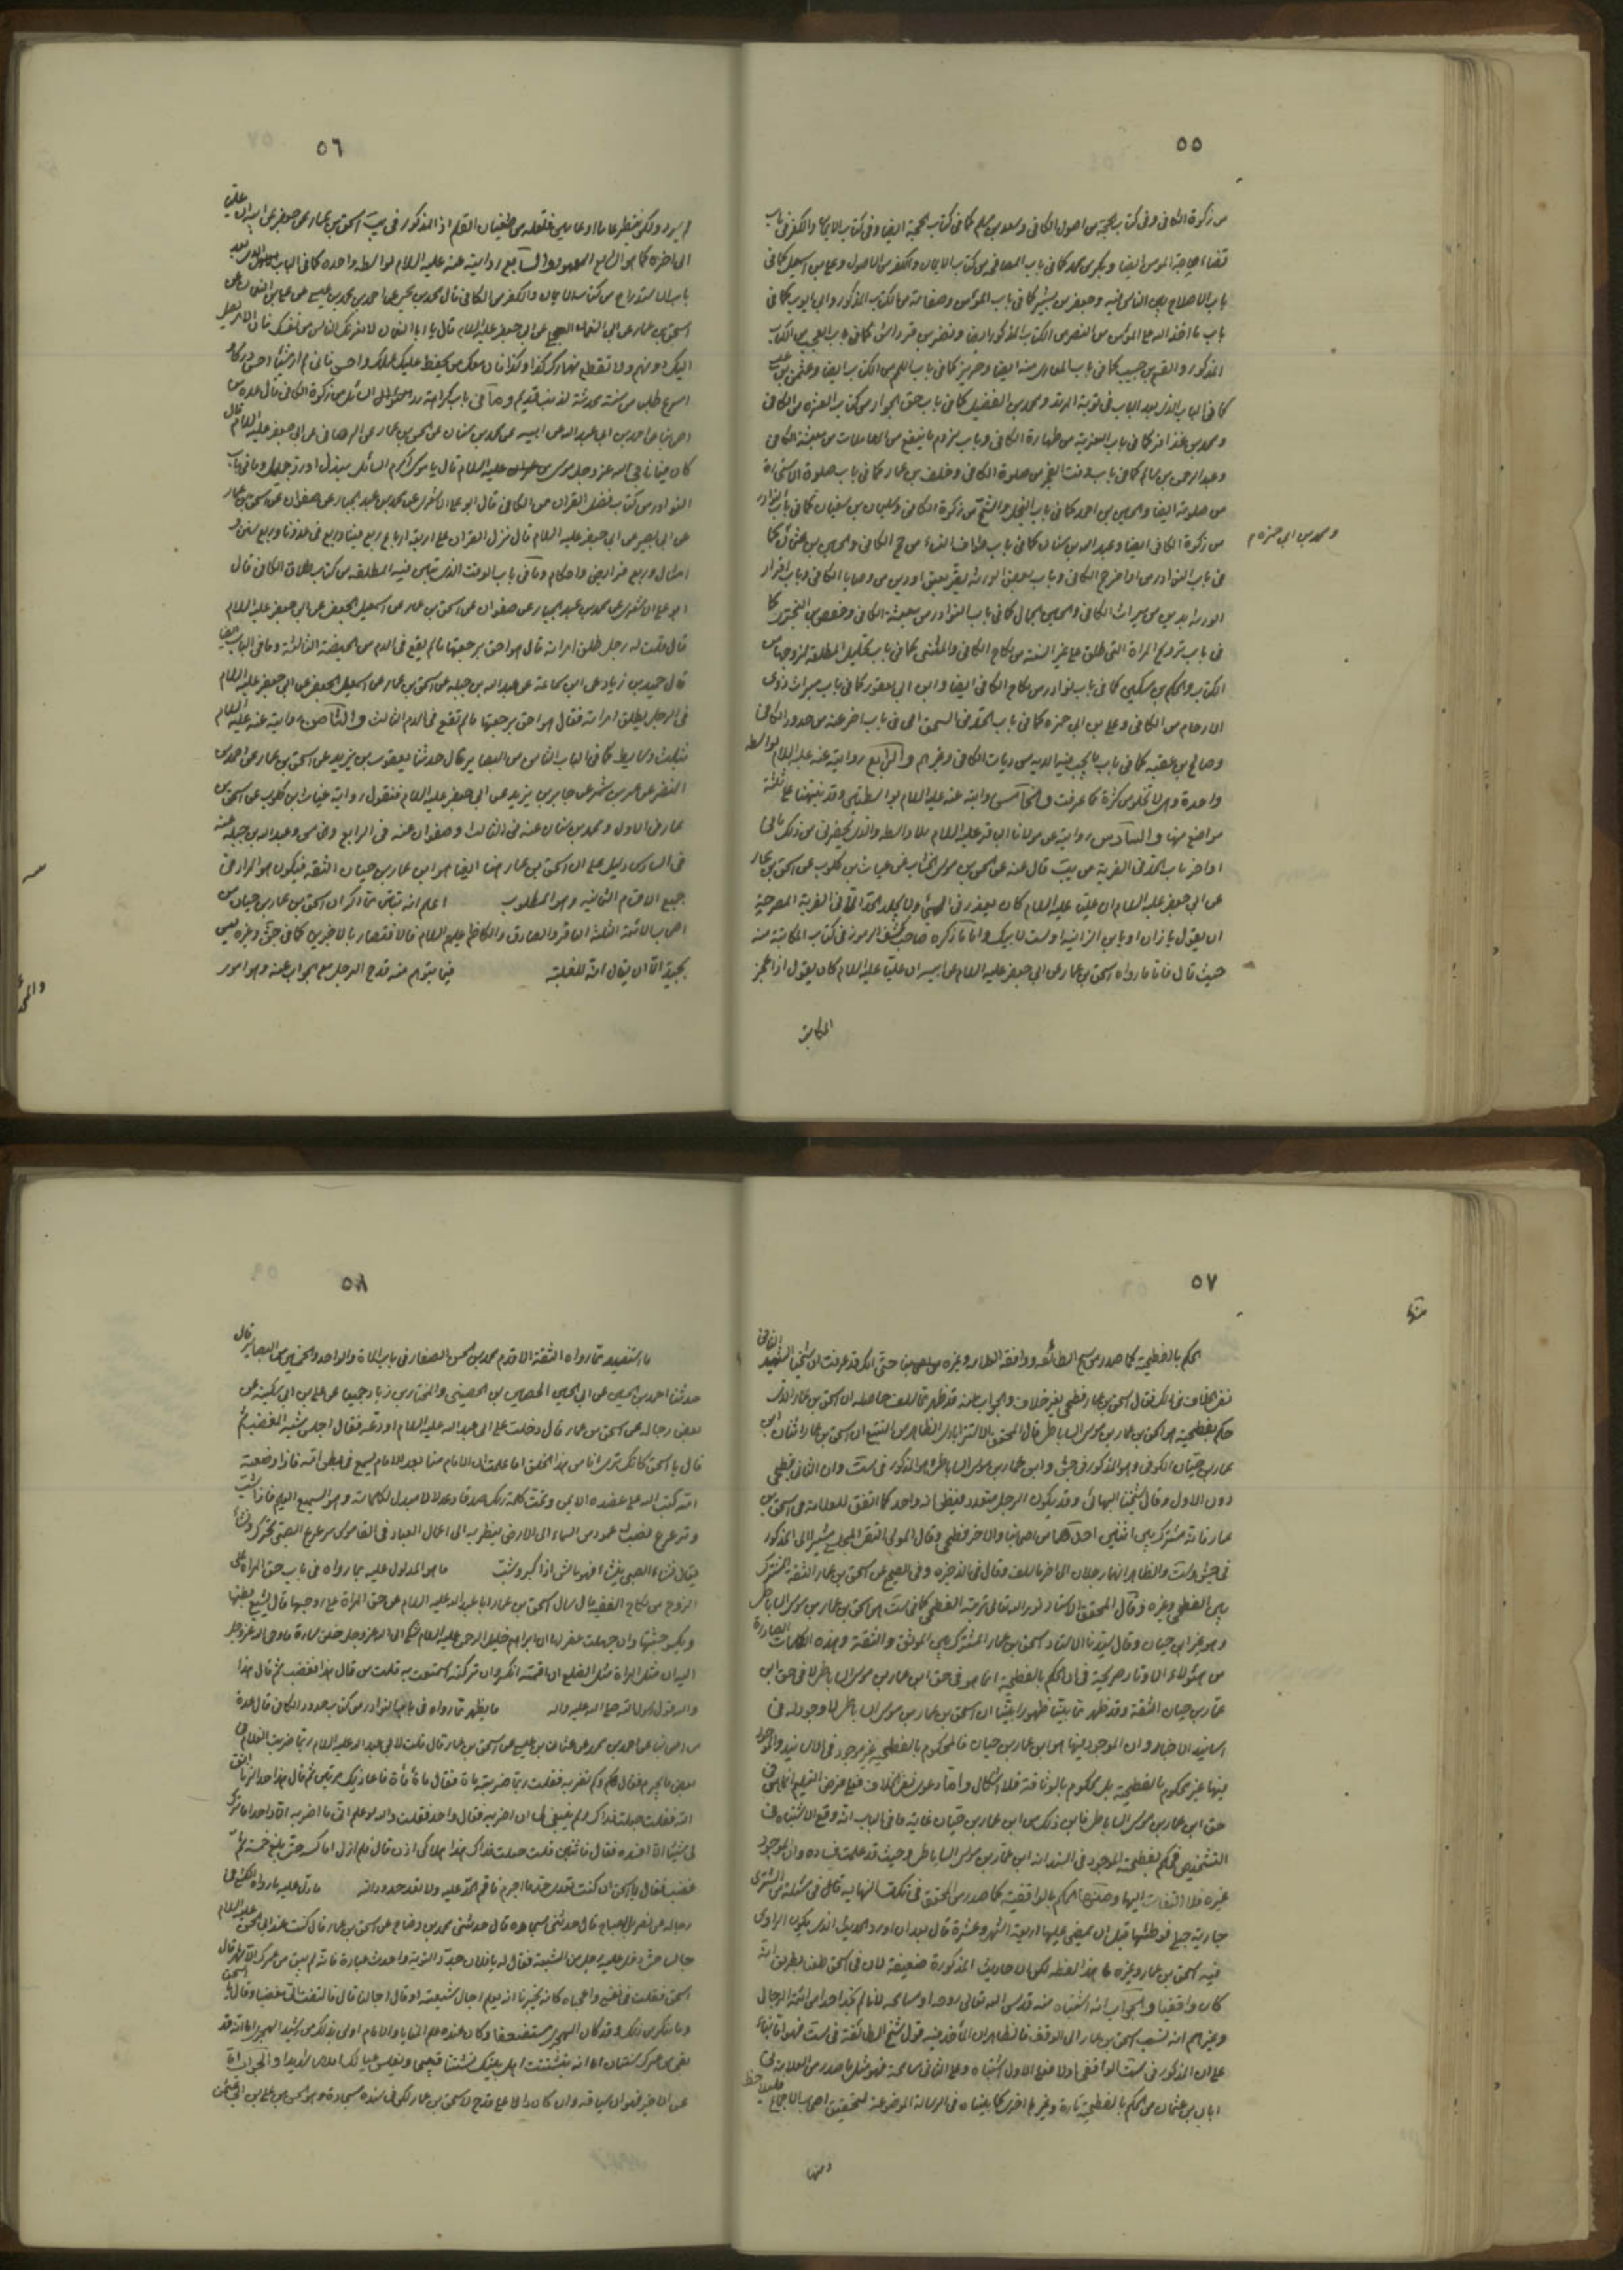 ٥٥
من زكوة الكافى وفى كتاب الحجة من اصول الكافى وسعد بن مسلم كما فى كتاب الحجة ايضا وفى كتاب الايمان والكفر فى باب
قضاء حاجة المؤمن ايضا وبكر بن محمد كما فى باب المصافحة من كتاب الايمان والكفر من الاصول وعلى بن اسمعيل كما فى
باب الاصلاح بين الناس فيه وجعفر بن بشير كما فى باب المؤمن وصفاته من الكتاب المذكور وابى ايوب كما فى
باب ما اخذ الله على المؤمن من النصر من الكتاب المذكور ايضا
المذكور والقسم بن حبيب كما فى باب المعارين منه ايضا وحريز كما فى باب اللمم من الكتاب ايضا وعثمن بن عيسى
كما فى الباب الذى بعد الباب فى توبة المرتد ومحمد بن الفضيل كما فى باب حق الجوار من كتاب العشرة من الكافى
ومحمد بن عذافر كما فى باب التعزية من طهارة الكافى وباب لزوم ما ينفع من المعاملات من معيشة الكافى
وعبد الرحمن بن سالم كما فى باب وقت الفجر من صلوة الكافى وخلف بن عمار كما فى باب صلوة الاستخارة
من صلوته ايضا والحسين بن احمد كما فى باب البخل والشح من زكوة الكافى وسليمان بن سفيان كما فى باب النوادر
من زكوة الكافى ايضا وعبد الله بن سنان كما فى باب طواف النساء من حج الكافى والحسين بن عثمان كما
ومحمد بن ابى حمزة م
فى باب النوادر من اواخر حج الكافى وباب بعض الورثة يقر بعتق او دين من وصايا الكافى وباب اقرار
الورثة بدين من ميراث الكافى والحسين الجمال كما فى باب النوادر من معيشة الكافى وحفص بن البخترى كما
فى باب تزويج المراة التى طلق على غير السنة من نكاح الكافى والمثنى كما فى باب تحليل المطلقة لزوجها من
الكتاب والحكم بن مسكين كما فى باب نوادر من نكاح الكافى ايضا وابن ابى يعفور كما فى باب ميراث ذوى
الارحام من الكافى وعلى بن ابى حمزة كما فى باب الحد فى السحق اى فى باب اخر عنه من حدود الكافى
وصالح بن عقبة كما فى باب ما يجب فيه الدية من ديات الكافى وغيرهم والرابع روايته عنه عليه السلام بواسطة
واحدة وهى لا تخلو من كثرة كما عرفت والخامس روايته عنه عليه السلام بواسطتين وقد نبهنا على ثلثة
مواضع منها والسادس روايته عن مولانا الباقر عليه السلام بلا واسطة والذى يحضرنى من ذلك ما فى
اواخر باب الحد فى الفرية من يب قال عنه عن الحسن بن موسى الخشاب عن غياث بن كلوب عن اسحق بن عمار
عن ابى جعفر عليه السلام ان عليا عليه السلام كان يعزر فى الهجاء ولا يجلد الحد الا فى الفرية المصرحة
ان يقول يا زان او يا بن الزانية او لست لابيك واما ما ذكره صاحب كشف الرموز فى كتاب المكاتبة منه
حيث قال فاما ما رواه اسحق بن عمار عن ابى جعفر عليه السلام عن ابيه ان عليا عليه السلام كان يقول اذا عجز
المكاتب
٥٦
لم يرد ولكن ينتظر عاما او عامين فلعله من طغيان القلم اذ المذكور فى يب اسحق بن عمار عن جعفر عن ابيه ان عليا
الى اخره كما هو الشايع المعهود والسابع روايته عنه عليه السلام بواسطة واحدة كما فى الباب
باب الاستدراج من كتاب الايمان والكفر من الكافى قال محمد بن يحيى عن احمد بن محمد بن عيسى عن على بن النعمان عن
اسحق بن عمار عن ابى النعمان العجلى عن ابى جعفر عليه السلام قال يا ابا النعمان لا يغرنك الناس من نفسك فان الامر يصل
اليك دونهم ولا تقطع نهارك بكذا وكذا فان معك من يحفظ عليك عملك واحسن فانى لم ار شيئا احسن دركا و
اسرع طلبا من حسنة محدثة لذنب قديم وما فى باب كراهية رد السائل من زكوة الكافى قال عدة من
اصحابنا عن احمد بن ابى عبد الله عن ابيه عن محمد بن سنان عن اسحق بن عمار عن الوصافى عن ابى جعفر عليه السلام قال
كان فيما ناجى الله عز وجل موسى بن عمران عليه السلام قال يا موسى اكرم السائل ببذل او رد جميل وما فى باب
النوادر من كتاب فضل القران من الكافى قال ابو على الاشعرى عن محمد بن عبد الجبار عن صفوان عن اسحق بن عمار
عن ابى بصير عن ابى جعفر عليه السلام قال نزل القران على اربعة ارباع ربع فينا وربع فى عدونا وربع سنن و
امثال وربع فرايض واحكام وما فى باب الوقت الذى تبين فيه المطلقة من كتاب طلاق الكافى قال
ابو على الاشعرى عن محمد بن عبد الجبار عن صفوان عن اسحق بن عمار عن اسمعيل الجعفى عن ابى جعفر عليه السلام
قال قلت له رجل طلق امراته قال هو احق برجعتها ما لم تقع فى الدم من الحيضة الثالثة وما فى الباب ايضا
قال حميد بن زياد عن ابن سماعة عن عبد الله بن جبلة عن اسحق بن عمار عن اسمعيل الجعفى عن ابى جعفر عليه السلام
فى الرجل يطلق امراته فقال هو احق برجعتها ما لم تقع فى الدم الثالث والثامن روايته عنه عليه السلام
بثلث وسايط كما فى الباب الثامن من البصاير قال حدثنا يعقوب بن يزيد عن اسحق بن عمار عن احمد بن
النضر عن عمرو بن شمر عن جابر بن يزيد عن ابى جعفر عليه السلام فنقول رواية غياث بن كلوب عن اسحق بن
عمار فى الاول ومحمد بن سنان عنه فى الثالث وصفوان عنه فى الرابع وعبد الله بن جبلة عنه
فى السادس دليل على ان اسحق بن عمار هنا ايضا هو ابن عمار بن حيان الثقة فيكون هو المراد فى
جميع الاقسام الثمانية وهو المطلوب اعلم انه تبين مما ذكر ان اسحق بن عمار بن حيان من
اصحاب الائمة الثلثة الباقر والصادق والكاظم عليهم السلام فالاقتصار بالاخيرين كما فى جش وغيره ليس
بجيد الا ان يقال انه للغلبة فيما يتوهم منه قدح الرجل مع الجواب عنه وهو امور
٥٧
الحكم بالفطحية كما صدر من شيخ الطائفة ووافقه العلامة وغيره من اصحابنا حتى انك قد عرفت ان شيخنا الشهيد الثانى
نفى الخلاف فى ذلك فقال اسحق بن عمار فطحى بغير خلاف والجواب عنه قد ظهر مما سلف حاصله ان اسحق بن عمار الذى
حكم بفطحيته هو اسحق بن عمار بن موسى الساباطى قال المحقق الاسترابادى الظاهر من التتبع ان اسحق بن عمار اثنان ابن
عمار بن حيان الكوفى وهو المذكور فى جش وابن عمار بن موسى الساباطى وهو المذكور فى ست وان الثانى فطحى
دون الاول وقال شيخنا البهائى وقد يكون الرجل متعددا فيظن انه واحد كما اتفق للعلامة فى اسحق بن
عمار فانه مشترك بين اثنين احدهما من اصحابنا والاخر فطحى وقال المولى التقى المجلسى مشيرا الى المذكور
فى جش وست والظاهر انهما رجلان الى اخر ما سلف وقال فى الذخيرة وفى الصحيح عن اسحق بن عمار الثقة المشترك
بين الفطحى وغيره وقال المحقق الاستاد نور الله تعالى تربته الفطحى كما فى ست هو اسحق بن عمار بن موسى الساباطى
وهو غير ابن حيان وقال سيدنا الاستاد اسحق بن عمار المشترك بين الموثق والثقة وهذه الكلمات الصادرة
من هؤلاء الاوتاد صريحة فى ان الحكم بالفطحية انما هو فى حق ابن عمار بن موسى الساباطى لا فى حق ابن
عمار بن حيان الثقة وقد ظهر مما بينا ظهورا بينا ان اسحق بن عمار بن موسى الساباطى لا وجود له فى
اسانيد الاخبار وان الموجود فيها هو ابن عمار بن حيان فالمحكوم بالفطحية غير موجود فى الاسانيد والموجود
فيها غير محكوم بالفطحية بل محكوم بالوثاقة فلا اشكال واما دعوى نفى الخلاف فعلى فرض التسليم انما هى فى
حق ابن عمار بن موسى الساباطى فاين ذلك من ابن عمار بن حيان غاية ما فى الباب انه وقع الاشتباه فى
التشخيص فحكم بفطحية الموجود فى السند انه ابن عمار بن موسى الساباطى وحيث قد علمت فساده وان الموجود
غيره فلا التفات اليها ومنها الحكم بالواقفية كما صدر من المحقق فى نكت النهاية قال فى مسئلة من اشترى
جارية حبلى فوطئها قبل ان يمضى عليها اربعة اشهر وعشرة قال بعد ان اورد الحديث الذى يكون الراوى
فيه اسحق بن عمار وغيره ما هذا لفظه لكن الاحاديث المذكورة ضعيفة لان فى اسحق طعنا بطريق انه
كان واقفيا والجواب انه اشتباه منه قدس الله تعالى روحه او مسامحة لانا لم نجد احدا من ائمة الرجال
وغيرهم انه نسب اسحق بن عمار الى الوقف فالظاهر ان الماخذ فيه قول شيخ الطائفة فى ست فهو اما بناء
على ان المذكور فى ست الواقفى اولا فعلى الاول اشتباه وعلى الثانى مسامحة فهو مثل ما صدر من العلامة فى
ابان بن عثمان من الحكم بالفطحية تارة وغيرها اخرى كما بيناه فى الرسالة الموضوعة لتحقيق اصحاب الاجماع فليلاحظ
ومنها
٥٨
ما يستفيد مما رواه الثقة الاقدم محمد بن الحسن الصفار فى باب المائة والواحد والخمسين من البصاير قال
حدثنا احمد بن الحسين عن ابى الحسين الحصين بن الحصينى والمختار بن زياد جميعا عن على بن ابى سكينة عن
بعض رجاله عن اسحق بن عمار قال دخلت على ابى عبد الله عليه السلام اودعه فقال اجلس شبه المغضب ثم
قال يا اسحق كانك ترى انا من هذا الخلق اما علمت ان الامام منا بعد الامام يسمع فى بطن امه فاذا وضعته
امه كتب الله على عضده الايمن وتمت كلمة ربك صدقا وعدلا لا مبدل لكلماته وهو السميع العليم فاذا شب
وترعرع نصب له عمود من السماء الى الارض ينظر به الى اعمال العباد فى القاموس ترعرع الصبى تحرك ونشأ
يقال نشاء الصبى ينشأ فهو ناش اذا كبر وشب ما هو المدلول عليه بما رواه فى باب حق المراة على
الزوج من نكاح الفقيه قال سال اسحق بن عمار ابا عبد الله عليه السلام عن حق المراة على زوجها قال يشبع بطنها
ويكسو جثتها وان جهلت غفر لها ان ابراهيم خليل الرحمن عليه السلام شكى الى الله عز وجل خلق سارة فاوحى الله عز وجل
اليه ان مثل المراة مثل الضلع ان اقمته انكسر وان تركته استمتعت به قلت من قال هذا فغضب ثم قال هذا
والله قول رسول الله صلى الله عليه واله ما يظهر مما رواه فى باب النوادر من كتاب حدود الكافى قال عدة
من اصحابنا عن احمد بن محمد عن عثمان بن عيسى عن اسحق بن عمار قال قلت لابى عبد الله عليه السلام ربما ضربت الغلام فى
بعض ما يجرم فقال وكم تضربه فقلت ربما ضربته مائة فقال مائة مائة فاعاد ذلك مرتين ثم قال هذا حد الزنا اتق
الله فقلت جعلت فداك فكم ينبغى لى ان اضربه فقال واحدا فقلت والله لو علم انى ما اضربه الا واحدا ما ترك
لى شيئا الا افسده فقال فاثنين قلت جعلت فداك هذا هلاكى اذن قال فلم ازل اماكسه حتى بلغ خمسة ثم
غضب فقال يا اسحق ان كنت تدرى حد ما اجرم فاقم الحد عليه ولا تعد حدود الله ما دل عليه ما رواه الكشى فى
رجاله عن نصر بن الصباح قال حدثنى سجادة قال حدثنى محمد بن وضاح عن اسحق بن عمار قال كنت عند ابى الحسن عليه السلام
جالسا حتى دخل عليه رجل من الشيعة فقال له يا فلان جدد التوبة واحدث عبادة فانه لم يبق من عمرك الا شهر قال
اسحق فقلت فى نفسى واعجباه كانه يخبرنا انه يعلم اجال شيعته او قال اجالنا قال فالتفت الى مغضبا وقال يا اسحق
وما تنكر من ذلك وقد كان الهجرى مستضعفا وكان عنده علم المنايا والامام اولى بذلك من رشيد الهجرى اما انه قد
بقى من عمرك سنتان اما انه يتشتت اهل بيتك تشتتا قبيحا ويفلس عيالك افلاسا شديدا والجواب اما
عن الاخير فهو ان سياقه وان كان دالا على قدح اسحق بن عمار لكن فى سنده سجادة وهو الحسن بن على بن ابى عثمن